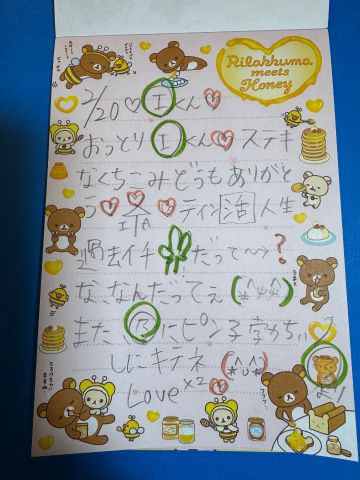 Rilakkuma
meets
Honey
2/20♡Ⓘくん♡
おっとりⒾくん♡ステキ
なくちこみどうもありがと
う♡
ティン活人生
過去イチ
だってへ〜？
な、なんだってぇ
また、
にピン子字かちぃ
しにキテネ (^^)
Love×2♡
より